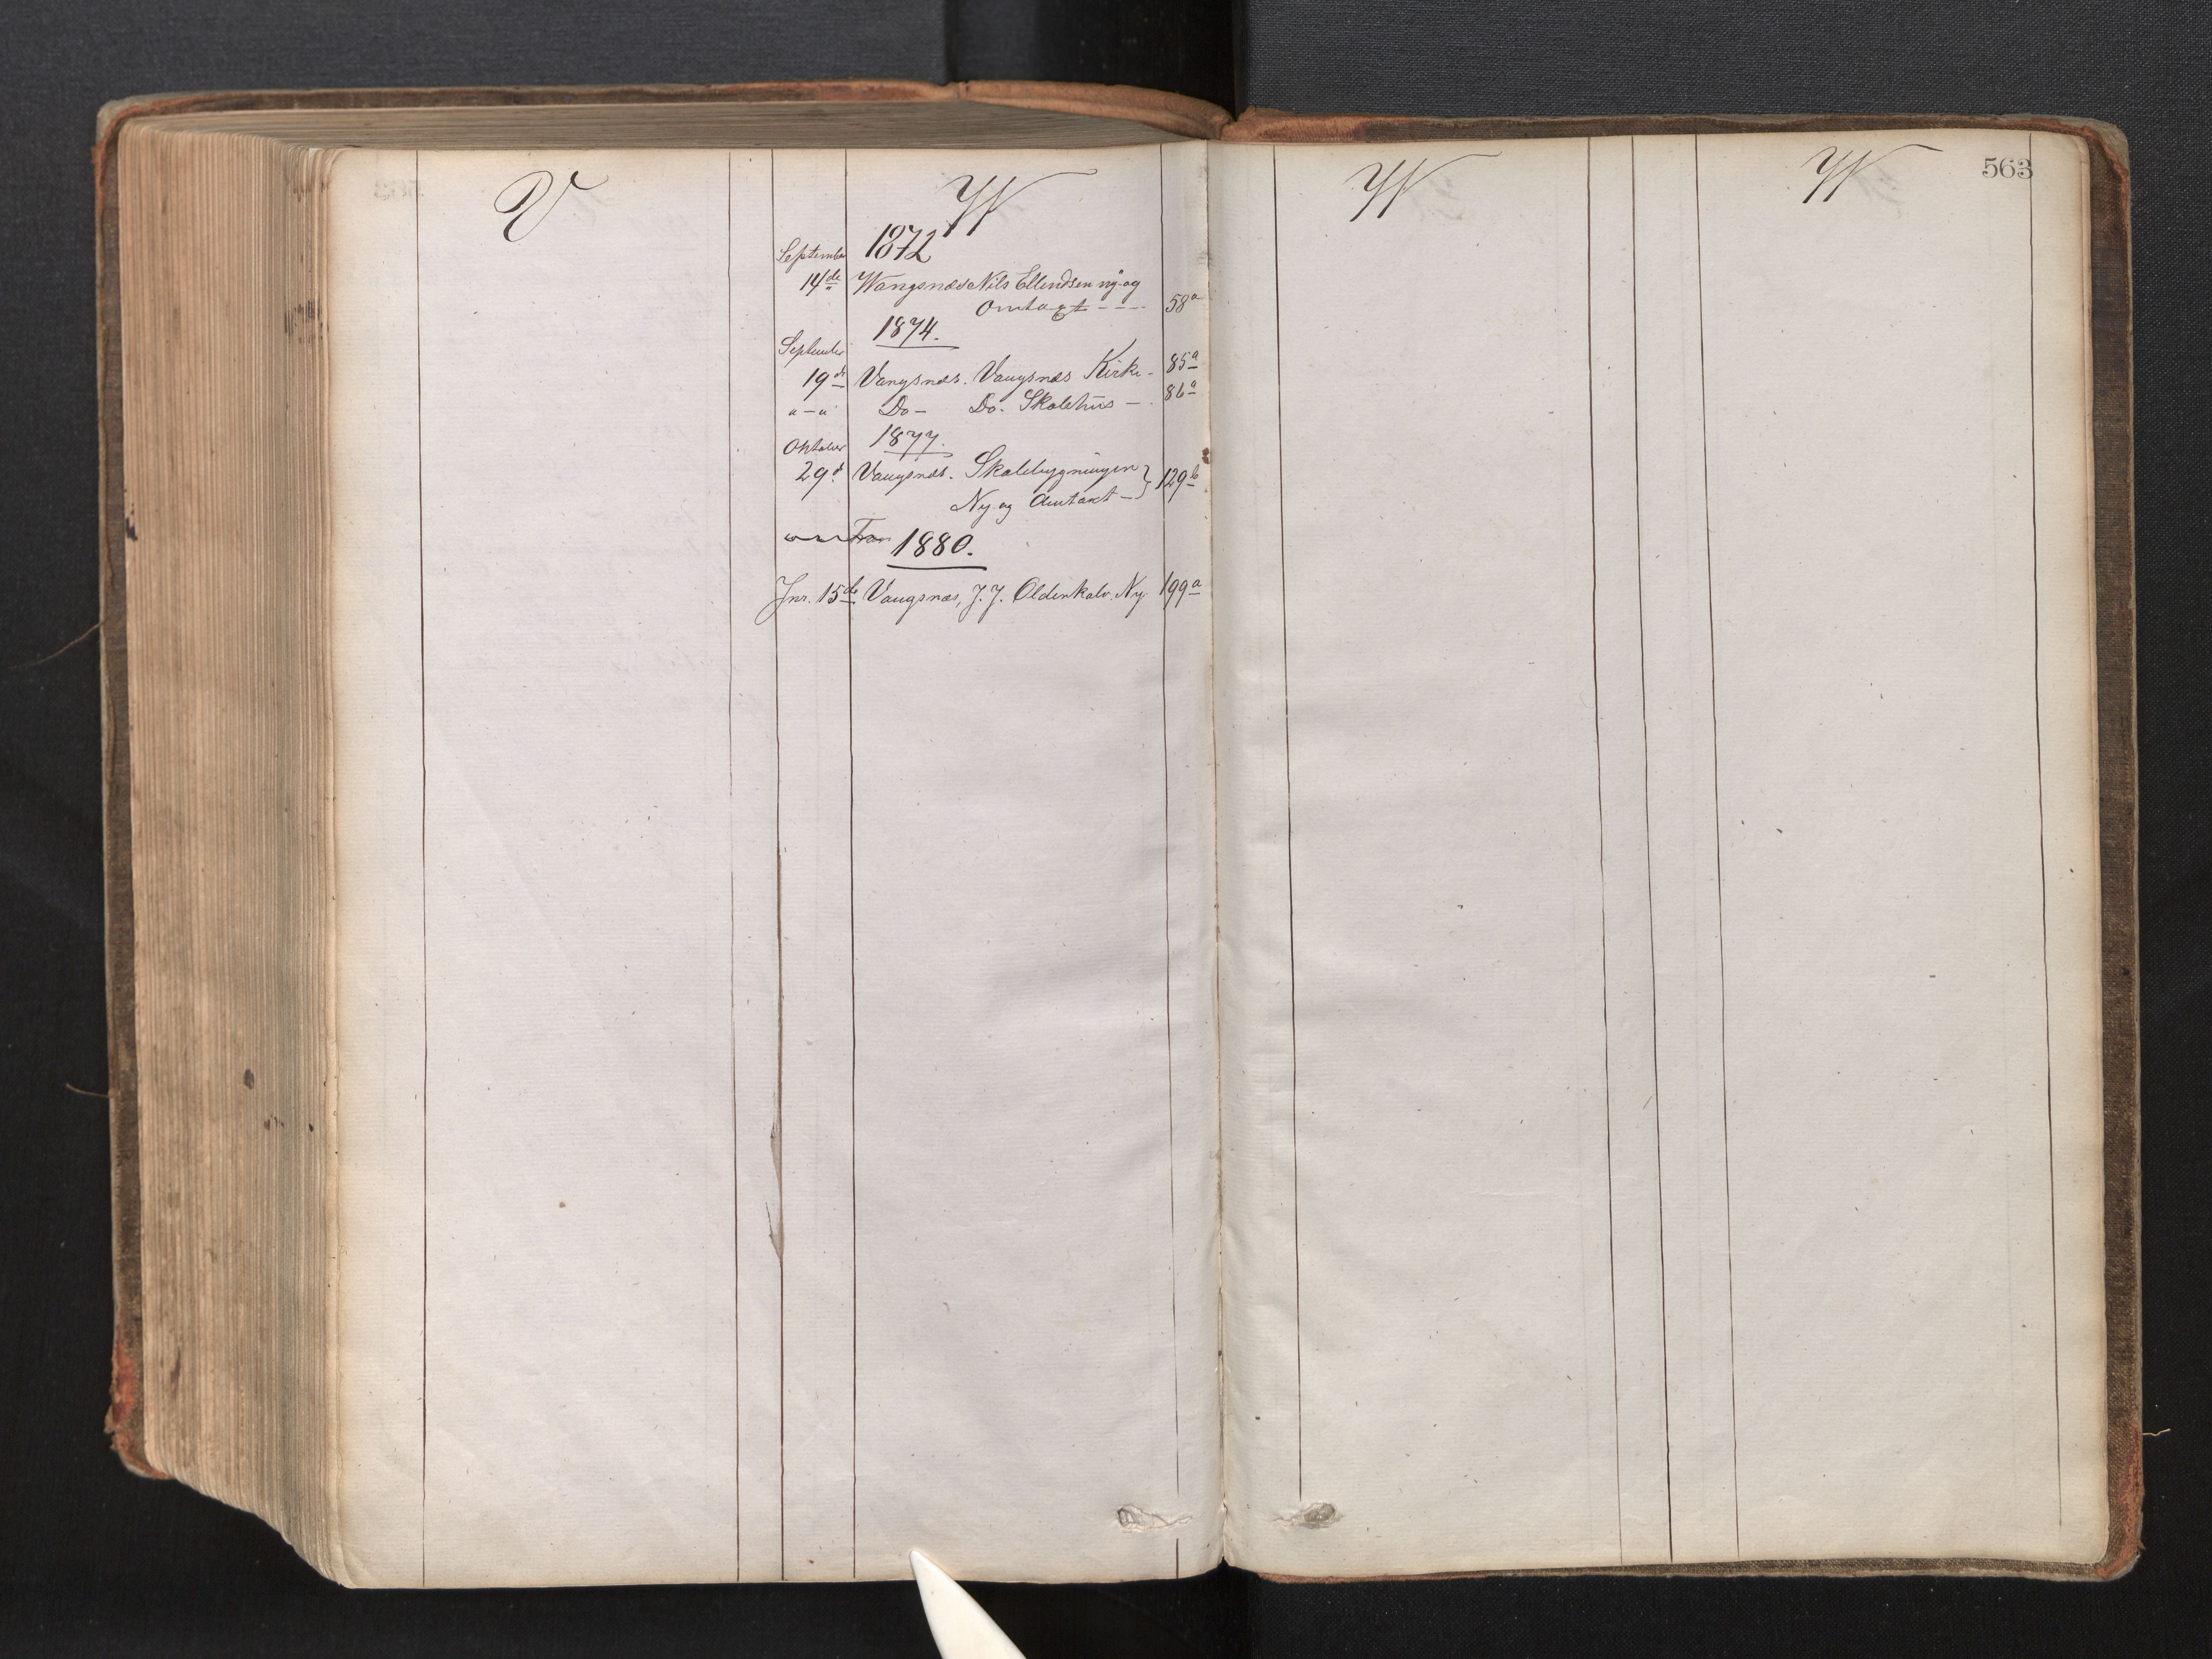 V
W
September 1872
14de Wangsnæs Nils Ellendsen ny og
Omtagt - - - 58a
1874.
September
19de Vangsnæs. Vangsnæs Kirke - 85a
" - " Do - Do. Skolehus - 86a
Oktober 1877.
29d Vangsnæs. Skolebygningen } 129b
Ny og Omtaxt -
1880.
Jnr. 15de Vangsnæs, J. J. Oldenkalv. Ny. 199a
W
W
563